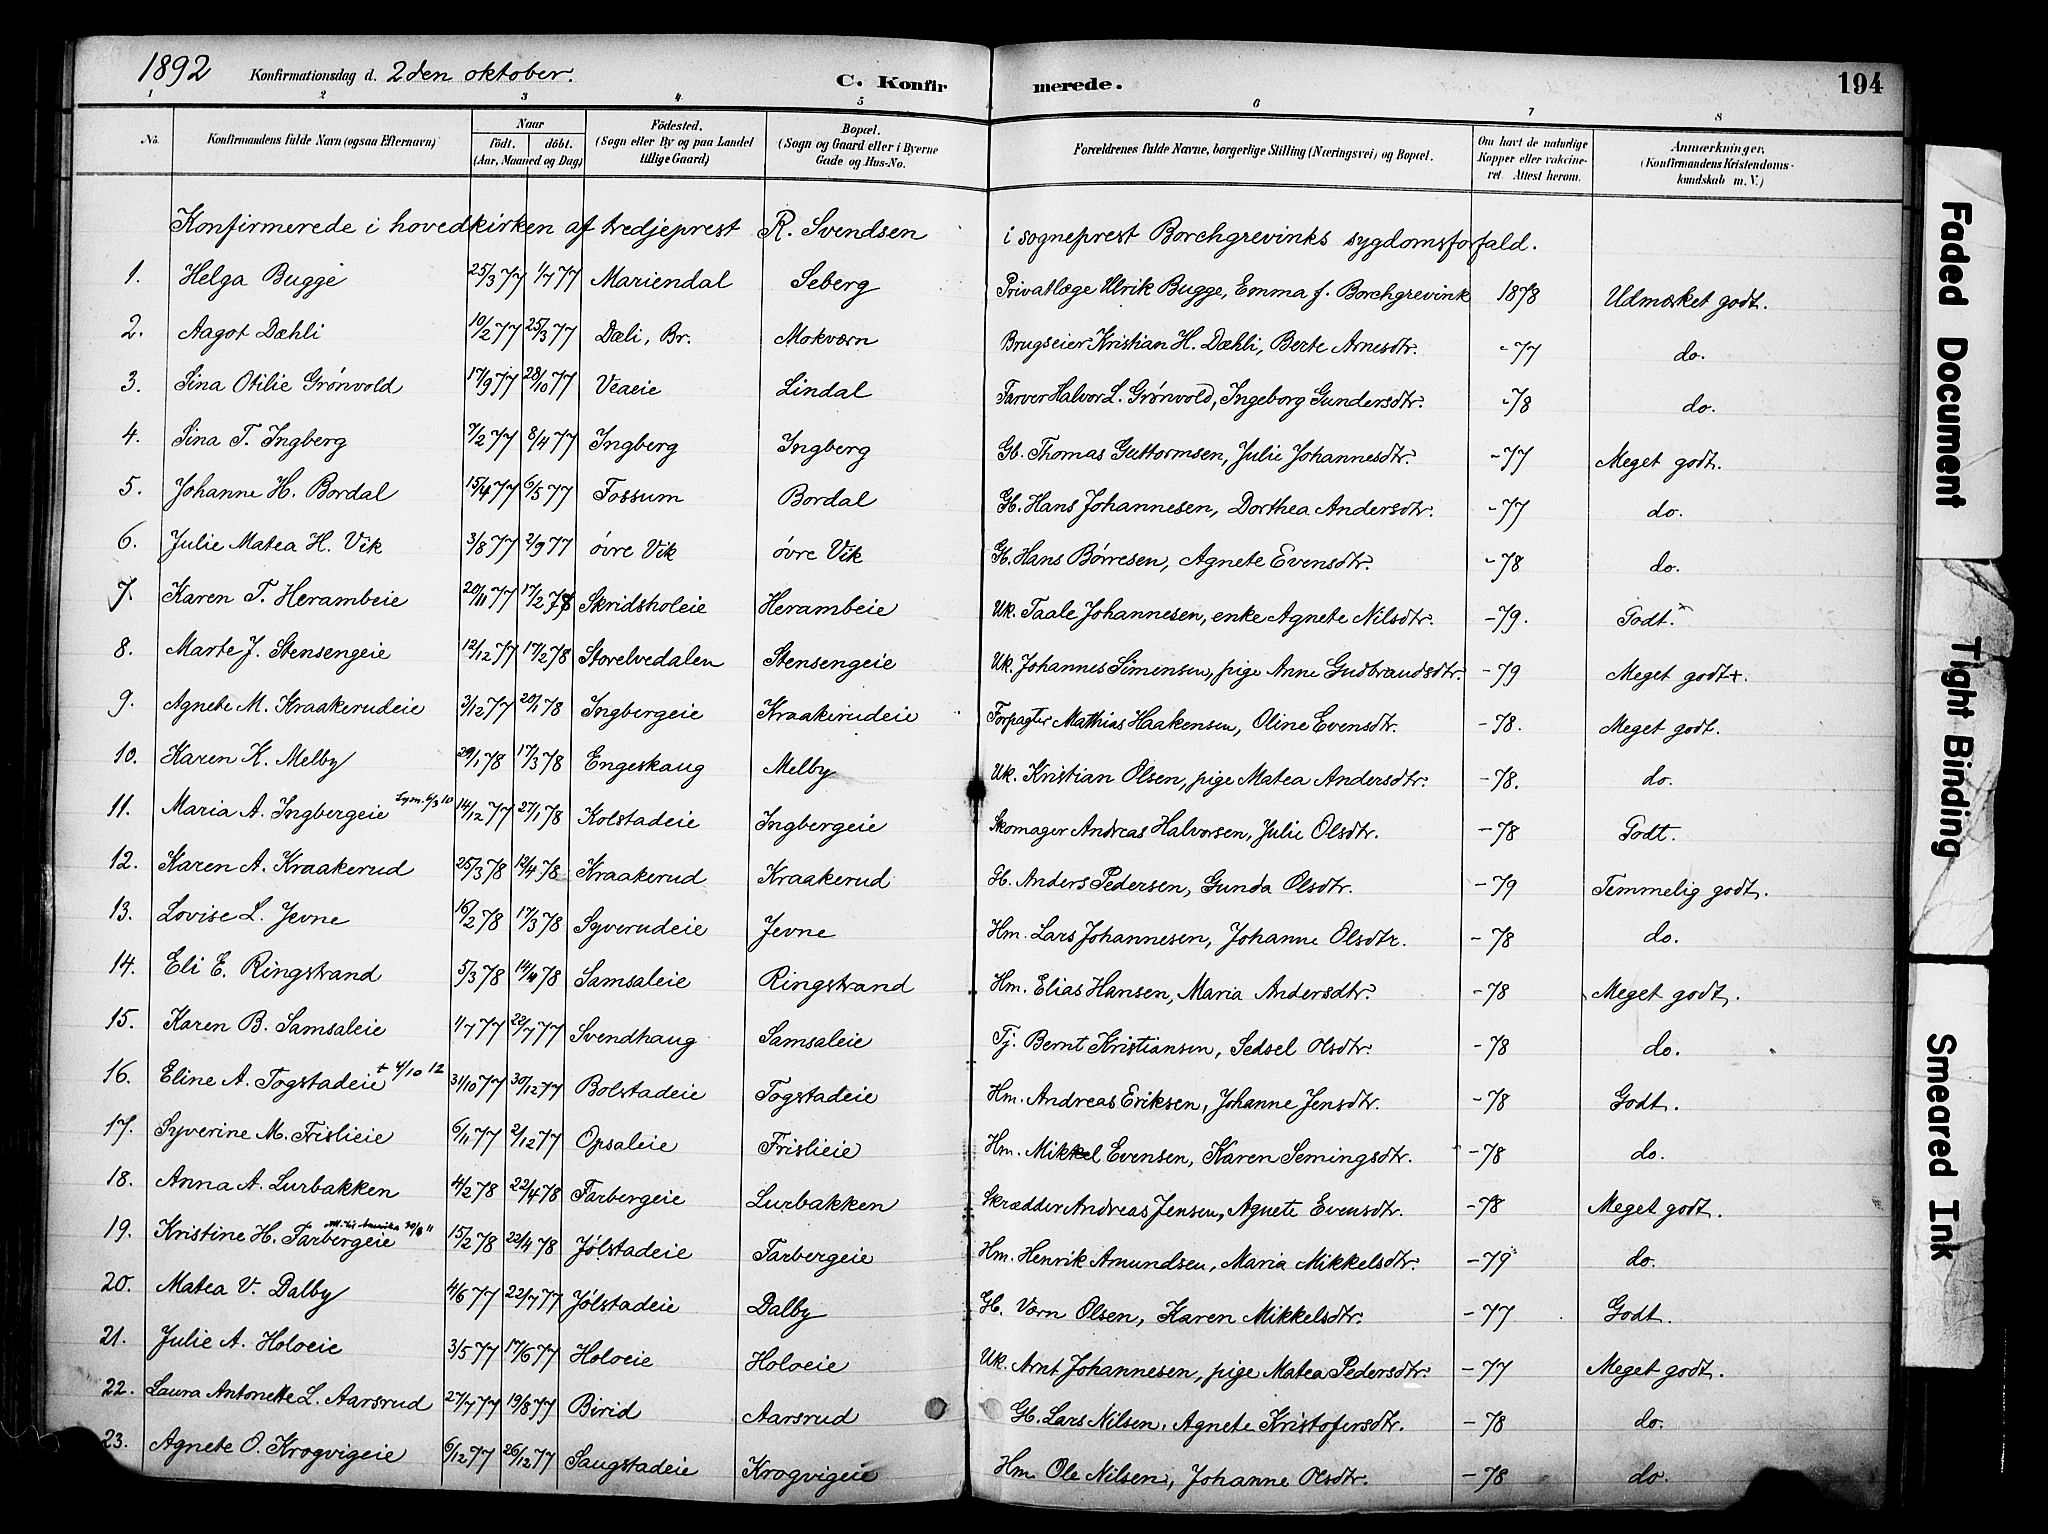 1892 Konfirmationsdag d. 2den oktober. C. Konfirmerede. 194
1 2 3 4 5 6 7 8
No. Konfirmandens fulde Navn (ogsaa Efternavn) Naar födt. döbt. (Aar, Maaned og Dag) Födested. (Sogn eller By og paa Landet tillige Gaard) Bopæl. (Sogn og Gaard eller i Byerne Gade og Hus-No. Forældrenes fulde Navne, borgerlige Stilling (Næringsvei) og Bopæl. Om havt de naturlige Kopper eller vakcineret Attest herom. Anmærkninger. (Konfirmandens Kristendomskundskab m. V.)
Konfirmerede i hovedkirken af tredjeprest R. Svendsen i sogneprest Borchgrevinks sygdomsforfald.
1. Helga Bugge 25/3 77 1/7 77 Mariendal Seberg Privatlæge Ulrik Bugge, Emma f. Borchgrevink 1878 Udmærket godt.
2. Aagot Dæhli 10/2 77 25/3 77 Dæli, Br. Mokværn Brugseier Kristian H. Dæhli, Berte Arnesdtr. -77 do.
3. Sina Otilie Grønvold 17/9 77 28/10 77 Veaeie Lindal Farver Halvor L. Grønvold, Ingeborg Gundersdtr. -78 do.
4. Sina T. Ingberg 7/2 77 8/4 77 Ingberg Ingberg Gb. Thomas Guttormsen, Julie Johannesdtr. -77 Meget godt.
5. Johanne H. Bordal 15/4 77 6/5 77 Fossum Bordal Gb. Hans Johannesen, Dorthea Andersdtr. -77 do.
6. Julie Matea H. Vik 3/8 77 2/9 77 øvre Vik øvre Vik Gb. Hans Børresen, Agnete Evensdtr. -78 do.
7. Karen T. Herambeie 20/11 77 17/2 78 Skridsholeie Herambeie Uk. Taale Johannesen, enke Agnete Nilsdtr. -79. Godt.
8. Marte J. Stensengeie 12/12 77 17/2 78 Storelvedalen Stensengeie Uk. Johannes Simensen, pige Anne Gudbrandsdtr. -79 Meget godt+.
9. Agnete M. Kraakerudeie 3/12 77 20/1 78 Ingbergeie Kraakerudeie Forpagter Mathias Haakensen, Oline Evensdtr. -78. Meget godt.
10. Karen K. Melby 29/1 78 17/3 78 Engeskaug Melby Uk. Kristian Olsen, pige Matea Andersdtr. -78. do.
11. Maria A. Ingbergeie 14/12 77 27/1 78 Kolstadeie Ingbergeie Skomager Andreas Halvorsen, Julie Olsdtr. -78 Godt.
12. Karen A. Kraakerud 25/3 78 12/4 78 Kraakerud Kraakerud H. Anders Pedersen, Gunda Olsdtr. -79 Temmelig godt.
13. Lovise L. Jevne 16/2 78 17/3 78 Syverudeie Jevne Hm. Lars Johannesen, Johanne Olsdtr. -78 do.
14. Eli E. Ringstrand 5/3 78 14/4 78 Samsaleie Ringstrand Hm. Elias Hansen, Maria Andersdtr. -78 Meget godt.
15. Karen B. Samsaleie 1/7 77 22/7 77 Svendhaug Samsaleie Tj. Bernt Kristiansen, Sedsel Olsdtr. -78 do.
16. Eline A. Togstadeie + 4/10 12 31/10 77 30/12 77 Bolstadeie Togstadeie Hm. Andreas Eriksen, Johanne Jensdtr. -78 Godt.
17. Syverine M. Frislieie 6/11 77 2/12 77 Opsaleie Frislieie Hm. Mikkel Evensen, Karen Semingsdtr. -78 do.
18. Anna A. Lurbakken 4/2 78 22/4 78 Farbergeie Lurbakken Skrædder Andreas Jensen, Agnete Evensdtr. -78 Meget godt.
19. Kristine H. Farbergeie 15/2 78 22/4 78 Jølstadeie Farbergeie Hm. Henrik Amundsen, Maria Mikkelsdtr. -79 do.
20. Matea V. Dalby 4/6 77 22/7 77 Jølstadeie Dalby Gb. Værn Olsen, Karen Mikkelsdtr. -77 Godt.
21. Julie A. Holoeie 3/5 77 17/6 77 Holoeie Holoeie Uk. Arnt Johannesen, pige Matea Pedersdtr. -77 Meget godt.
22. Laura Antonette L. Aarsrud 27/7 77 19/8 77 Birid Aarsrud Gb. Lars Nilsen, Agnete Kristofersdtr. -78 do.
23. Agnete O. Krogvigeie 6/12 77 26/12 77 Saugstadeie Krogvigeie Hm. Ole Nilsen, Johanne Olsdtr. -78 do.
Faded Document
Tight Binding
Smeared Ink